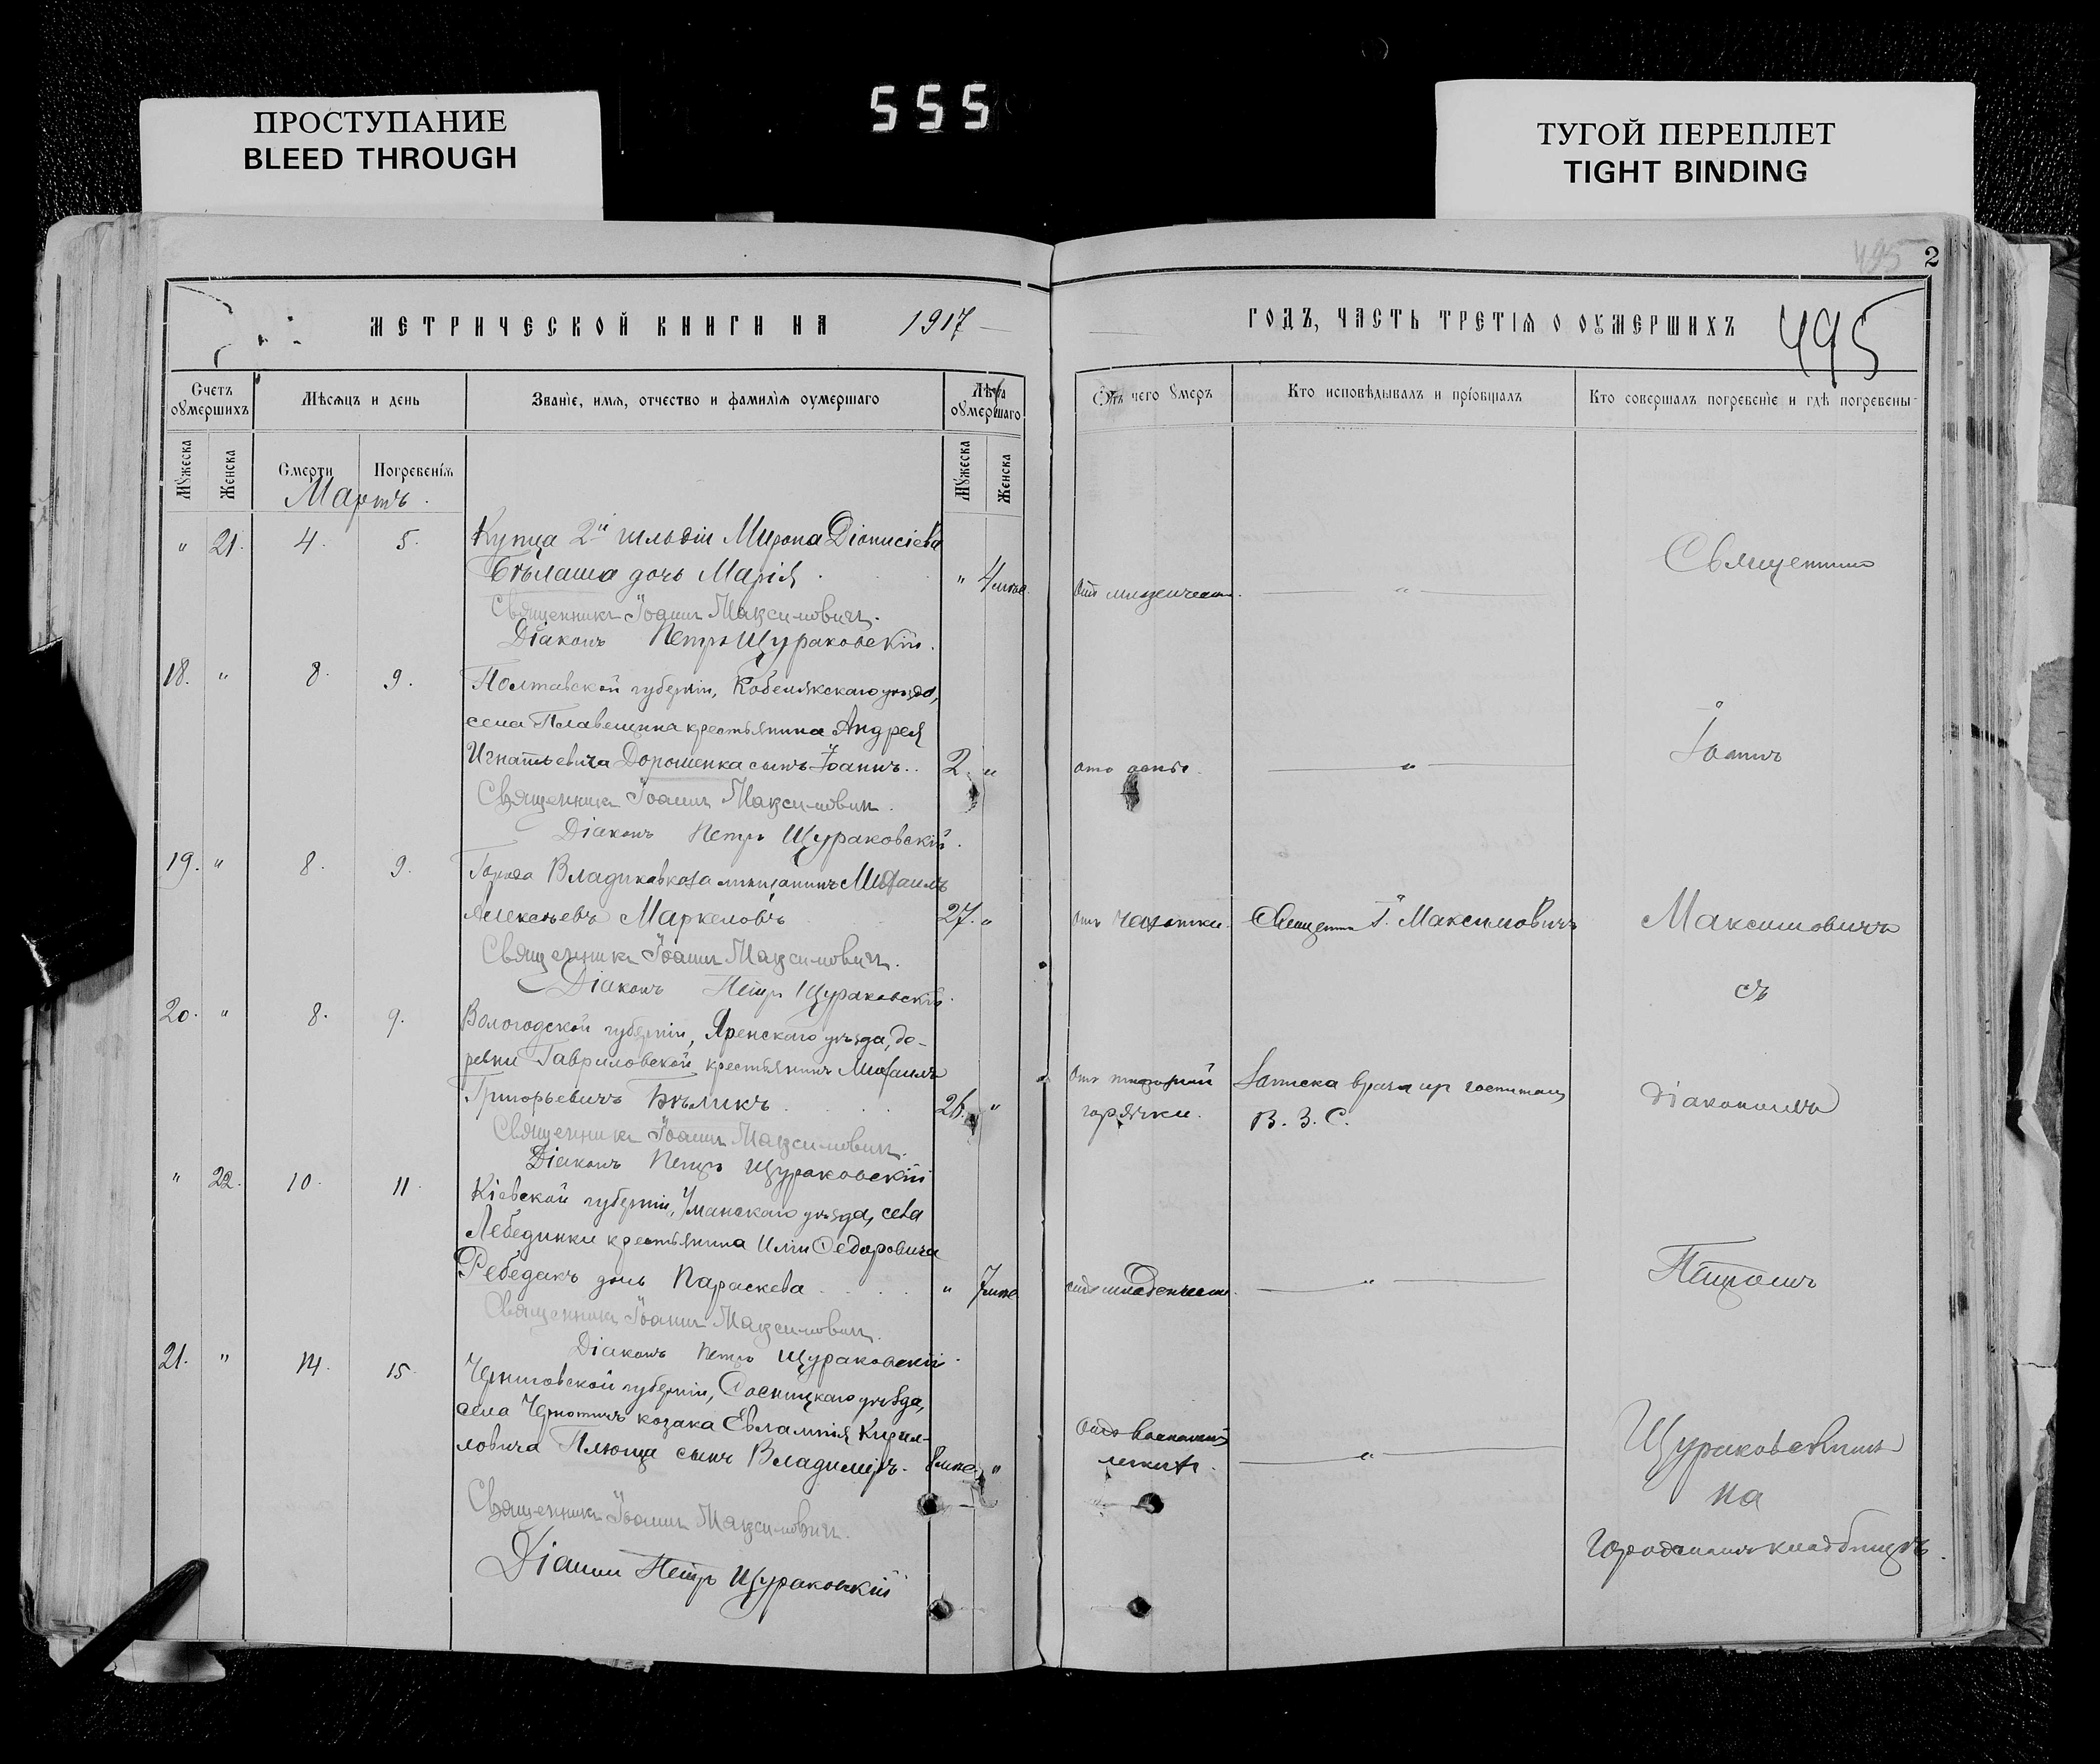 ПРОСТУПАНИЕ
BLEED THROUGH
555
ТУГОЙ ПЕРЕПЛЕТ
TIGHT BINDING
495
2
МЕТРИЧЕСКОЙ КНИГИ НА 1917
ГОДЪ, ЧАСТЬ ТРЕТІѦ О ОУМЕРШИХЪ
495
Счетъ оумершихъ
Мѣсѧцъ и день
Званіе, имѧ, отчество и фамиліѧ оумершаго
Лѣта оумершаго
Отъ чего оумеръ
Кто исповѣдывалъ и пріобщалъ
Кто совершалъ погребеніе и гдѣ погребены
Мужеска
Женска
Смерти
Погребеніѧ
Мужеска
Женска
Мартъ.
" 21. 4. 5. Купца 2й гильдіи Мирона Діонисіева
Бѣлаша дочь Марія. " 4 мѣс. отъ младенческ. "
Священникъ Іоаннъ Максимовичъ.
Діаконъ Петръ Щураковскій.
18. " 8. 9. Полтавской губерніи, Кобелякскаго уѣзда,
села Плавещина крестьянина Андрея
Игнатьевича Дорошенка сынъ Іоаннъ.. 2. " отъ оспы. "
Священникъ Іоаннъ Максимовичъ.
Діаконъ Петръ Щураковскій.
19. " 8. 9. Города Владикавказа мѣщанинъ Михаилъ
Алексѣевъ Маркеловъ 27. " отъ чахотки. Священн. І. Максимовичъ
Священникъ Іоаннъ Максимовичъ.
Діаконъ Петръ Щураковскій.
20. " 8. 9. Вологодской губерніи, Яренскаго уѣзда, де-
ревни Гавриловской крестьянинъ Михаилъ
Григорьевичъ Бѣлыкъ 26. " отъ горячки. Записка врача В. З. С.
Священникъ Іоаннъ Максимовичъ.
Діаконъ Петръ Щураковскій
" 22. 10. 11. Кіевской губерніи, Уманскаго уѣзда, села
Лебединки крестьянина Иліи Ѳедоровича
Ребедакъ дочь Параскева " 7 мѣс. отъ младенческ. "
Священникъ Іоаннъ Максимовичъ.
Діаконъ Петръ Щураковскій.
21. " 14. 15. Черниговской губерніи, Сосницкаго уѣзда,
села козака Евлампія Кирил-
ловича Плюща сынъ Владиміръ. 8 мѣс. " отъ воспаленія легкихъ. "
Священникъ Іоаннъ Максимовичъ.
Діаконъ Петръ Щураковскій
Священникъ
Іоаннъ
Максимовичъ
съ
діакономъ
Петромъ
Щураковскимъ
на
городскомъ кладбищѣ.